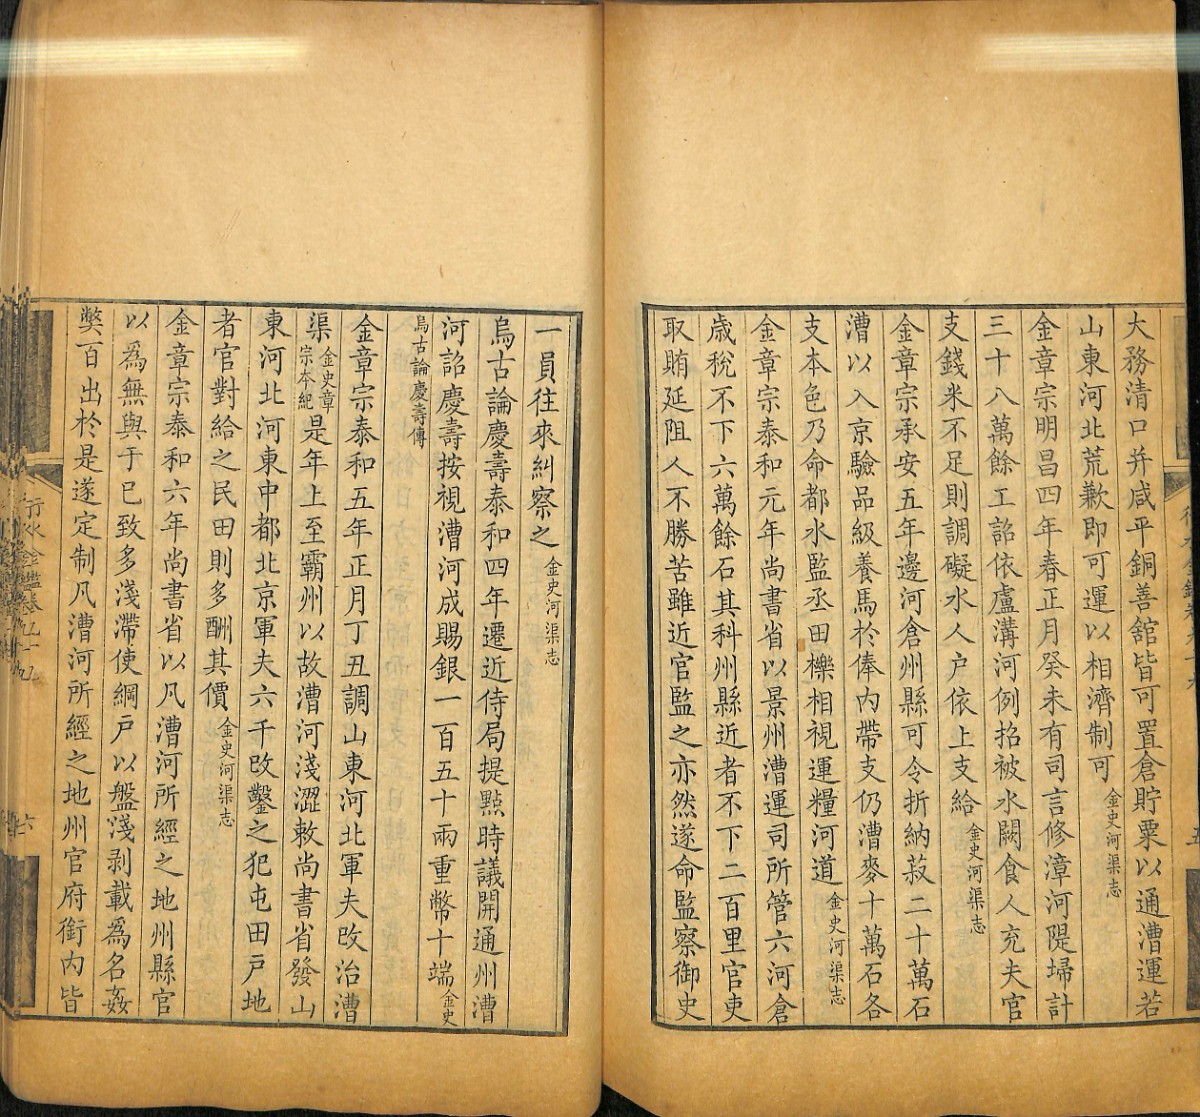 大務清口并咸平銅善舘皆可置倉貯粟以通漕運若
山東河北荒歉即可運以相濟制可金史河渠志
金章宗明昌四年春正月癸未有司言修漳河隄埽計
三十八萬餘工詔依盧溝河例招被水闕食人充夫官
支錢米不足則調礙水人户依上支給金史河渠志
金章宗承安五年邊河倉州縣可令折納菽二十萬石
漕以入京驗品級養馬於俸内帶支仍漕麥十萬石各
支本色乃命都水監丞田櫟相視運糧河道金史河渠志
金章宗泰和元年尚書省以景州漕運司所管六河倉
歳稅不下六萬餘石其科州縣近者不下二百里官吏
取賄延阻人不勝苦雖近官監之亦然遂命監察御史
一員往來糾察之金史河渠志
烏古論慶壽泰和四年遷近侍局提點時議開通州漕
河詔慶壽按視漕河成賜銀一百五十兩重幣十端金史
烏古論慶壽傳
金章宗泰和五年正月丁丑調山東河北軍夫改治漕
渠金史章宗本紀是年上至霸州以故漕河淺澀敕尚書省發山
東河北河東中都北京軍夫六千改鑿之犯屯田戸地
者官對給之民田則多酬其價金史河渠志
金章宗泰和六年尚書省以凡漕河所經之地州縣官
以爲無與于已致多淺滯使綱戸以盤淺剥載爲名姦
弊百出於是遂定制凡漕河所經之地州官府銜内皆
行水金鑑卷九十九
六